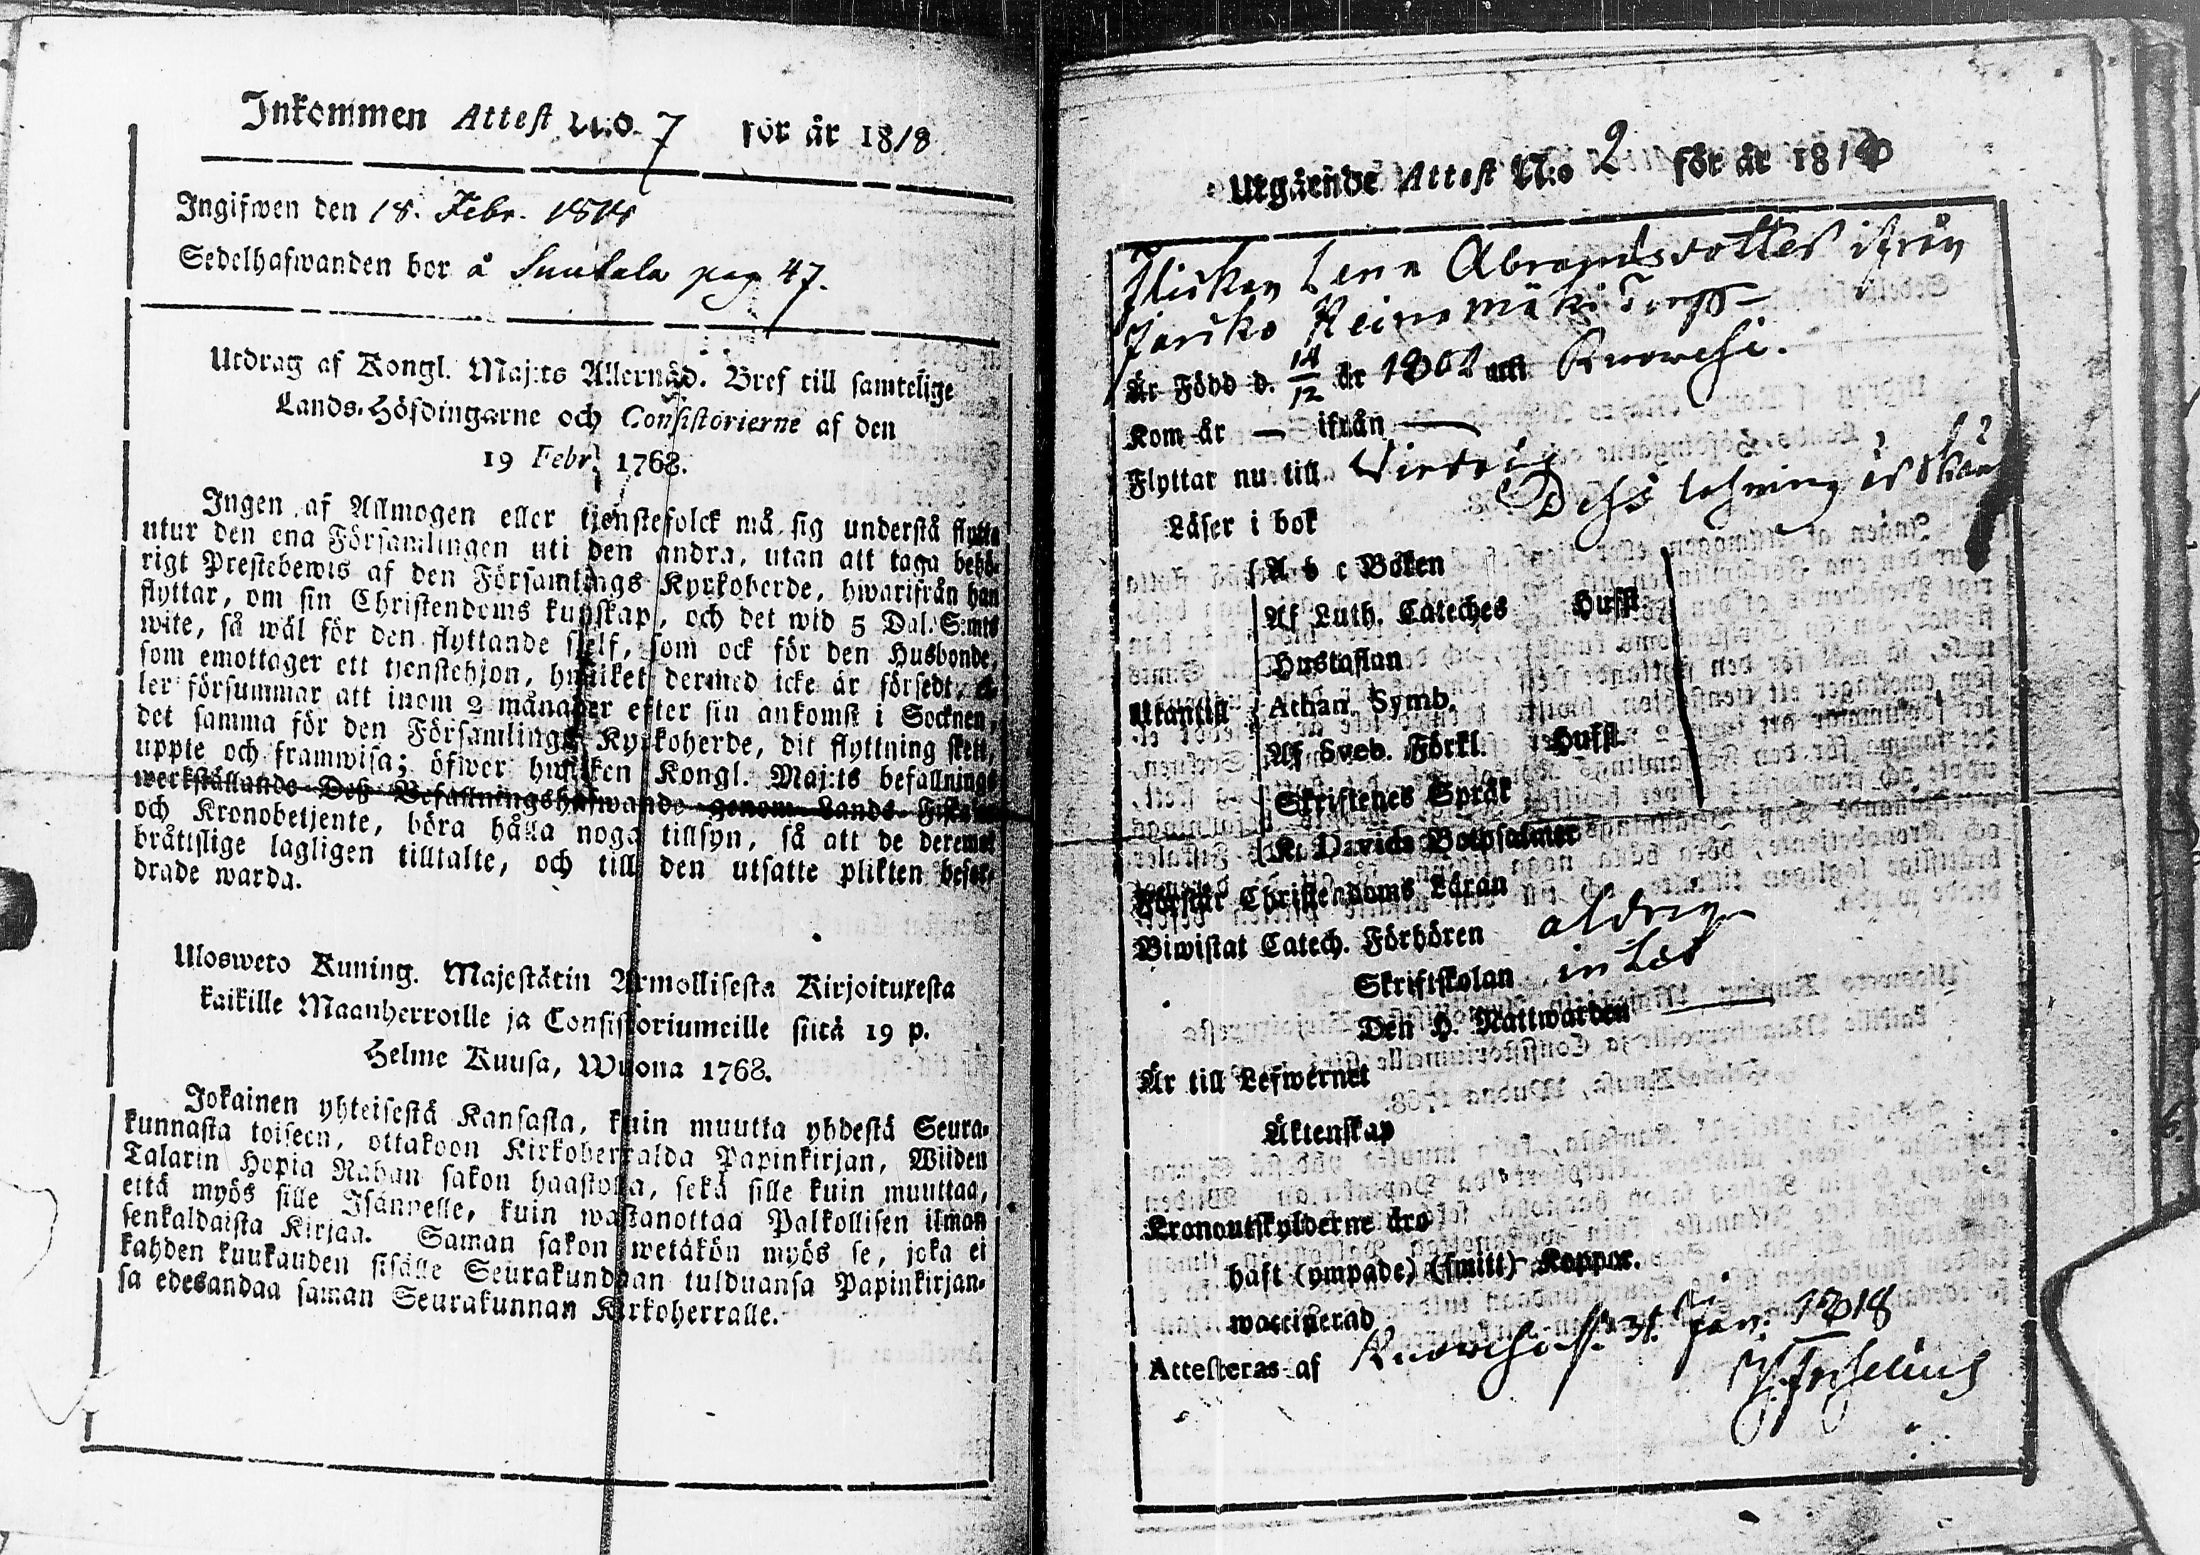 Inkommen Attest N:o 7 för år 1818
Ingifwen den 18. Febr. 1818
Sedelhafwanden bor å Suutala pag 47.
Utdrag af Kongl. Maj:ts Allernåd. Bref till samtelige
Lands-Höfdingarne och Consistorierne af den
19 Febr. 1768.
Ingen af Allmogen eller tjenstefolck må sig understå flytta
utur den ena Församlingen uti den andra, utan att taga behö-
rigt Prestebewis af den Församlings Kyrkoherde, hwarifrån han
flyttar, om sin Christendoms kunskap, och det wid 5 Dal. S:mts
wite, så wäl för den flyttande sjelf, som ock för den Husbonde,
som emottager ett tjenstehjon, hwilket dermed icke är försedt, el-
ler försummar att inom 2 månader efter sin ankomst i Socknen,
det samma för den Församlings Kyrkoherde, dit flyttning skett,
uppte och framwisa; öfwer hwilken Kongl. Maj:ts befallnings
werkställande Deß Befallningshafwande genom Lands Fiskaler
och Kronobetjente, böra hålla noga tillsyn, så att de deremot
bråttslige lagligen tilltalte, och till den utsatte plikten befor-
drade warda.
Ulosweto Kuning. Majestätin Armollisesta Kirjoituxesta
kaikille Maanherroille ja Consistoriumeille siitä 19 p.
Helme Kuusa, Wuona 1768.
Jokainen yhteisestä Kansasta, kuin muutta yhdestä Seura-
kunnasta toiseen, ottakoon Kirkoherralda Papinkirjan, Wiiden
Talarin Hopia Rahan sakon haastolla, sekä sille kuin muuttaa,
että myös sille Isännelle, kuin wastanottaa Palkollisen ilman
senkaldaista Kirjaa. Saman sakon wetäkön myös se, joka ei
kahden kuukauden sisälle Seurakundaan tulduansa Papinkirjan-
sa edesandaa saman Seurakunnan Kirkoherralle.
Utgående Attest N:o 2 för år 181
Flickan Lena Abramsdotter ifrån
Heinämäki Torp
Är Född d. 14/12 år 1802 uti Ruowesi.
Kom år — ifrån —
Flyttar nu till Wirdois
Dess läsning är
Läser i bok
A b c Boken
Af Luth. Cateches Hufst
Hustaflan
Utantill Athan. Symb.
Af Sveb. Förkl. Hufst.
Skriftenes Språk
K. Davids Botpsalmer
Förstår Christendoms Läran
Biwistat Catech. Förhören aldrig
Skriftskolan intet
Den H. Nattwarden —
Är till Lefwernet
Äktenskap
Kronoutskylderne äro
haft (ympade) (smitt) Koppor.
waccinerad
Attesteras af Ruowesi d. 31. Jan. 1818